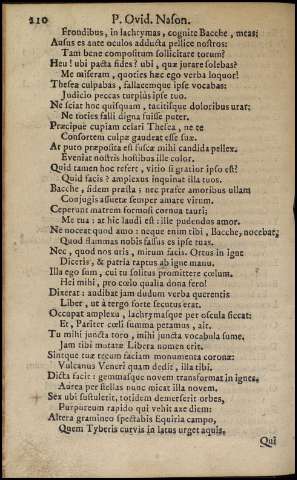 210 P. Ovid. Nason.
Frondibus, in lachrymas, cognite Bacche, meas;
Ausus es ante oculos adducta pellice nostros:
Tam bene compositum sollicitare torum?
Heu! ubi pacta fides? ubi, quæ jurare solebas?
Me miseram, quoties hæc ego verba loquor!
Thesea culpabas, fallacemque ipse vocabas:
Judicio peccas turpiùs ipse tuo.
Ne sciat hoc quisquam, tacitisque doloribus urar;
Ne toties falli digna fuisse puter.
Præcipuè cupiam celari Thesea, ne te
Consortem culpæ gaudeat esse suæ.
At puto præposita est fuscæ mihi candida pellex.
Eveniat nostris hostibus ille color.
Quid tamen hoc refert, vitio si gratior ipso est?
Quid facis? amplexus inquinat illa tuos.
Bacche, fidem præsta: nec præfer amoribus ullam
Conjugis assuetæ semper amare virum.
Ceperunt matrem formosi cornua tauri;
Me tua: at hic laudi est: ille pudendus amor.
Ne noceat quod amo: neque enim tibi, Bacche, nocebat,
Quod flammas nobis fassus es ipse tuas.
Nec, quod nos uris, mirum facis. Ortus in igne
Diceris, & patria raptus ab igne manu.
Illa ego sum, cui tu solitus promittere cœlum.
Hei mihi, pro cœlo qualia dona fero!
Dixerat: audibat jam dudum verba querentis
Liber, ut à tergo forte secutus erat.
Occupat amplexu, lachrymasque per oscula siccat:
Et, Pariter cœli summa petamus, ait.
Tu mihi juncta toro, mihi juncta vocabula sume,
Jam tibi mutatæ Libera nomen erit.
Sintque tuæ tecum faciam monumenta coronæ:
Vulcanus Veneri quam dedit, illa tibi.
Dicta facit: gemmasque novem transformat in ignes,
Aurea per stellas nunc micat illa novem.
Sex ubi sustulerit, totidem demerserit orbes,
Purpureum rapido qui vehit axe diem:
Altera gramineo spectabis Equiria campo,
Quem Tyberis curvis in latus urget aquis.
Qui